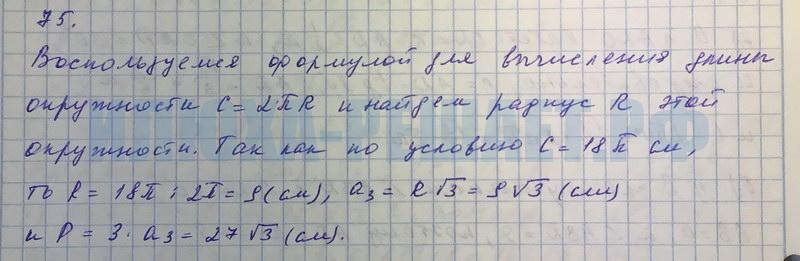 75.
Воспользуемся формулой для вычисления длины
окружности C = 2πR и найдем радиус R этой
окружности. Так как по условию C = 18π см,
то R = 18π : 2π = 9 (см), a₃ = R√3 = 9√3 (см)
и P = 3 · a₃ = 27√3 (см).